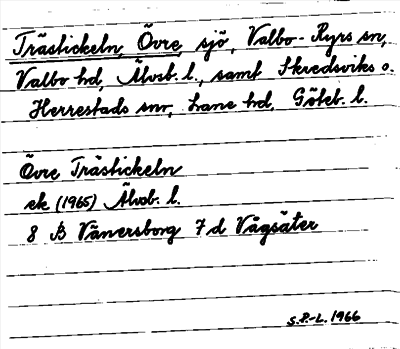 Trästickeln, Övre, sjö, Valbo-Ryrs sn,
Valbo hd, Älvsb. l., samt Skredsviks o.
Herrestads snr, Lane hd, Göteb. l.
Övre Trästickeln
ek (1965) Älvsb. l.
8 B Vänersborg 7 d Vågsäter
S.P.-L. 1966